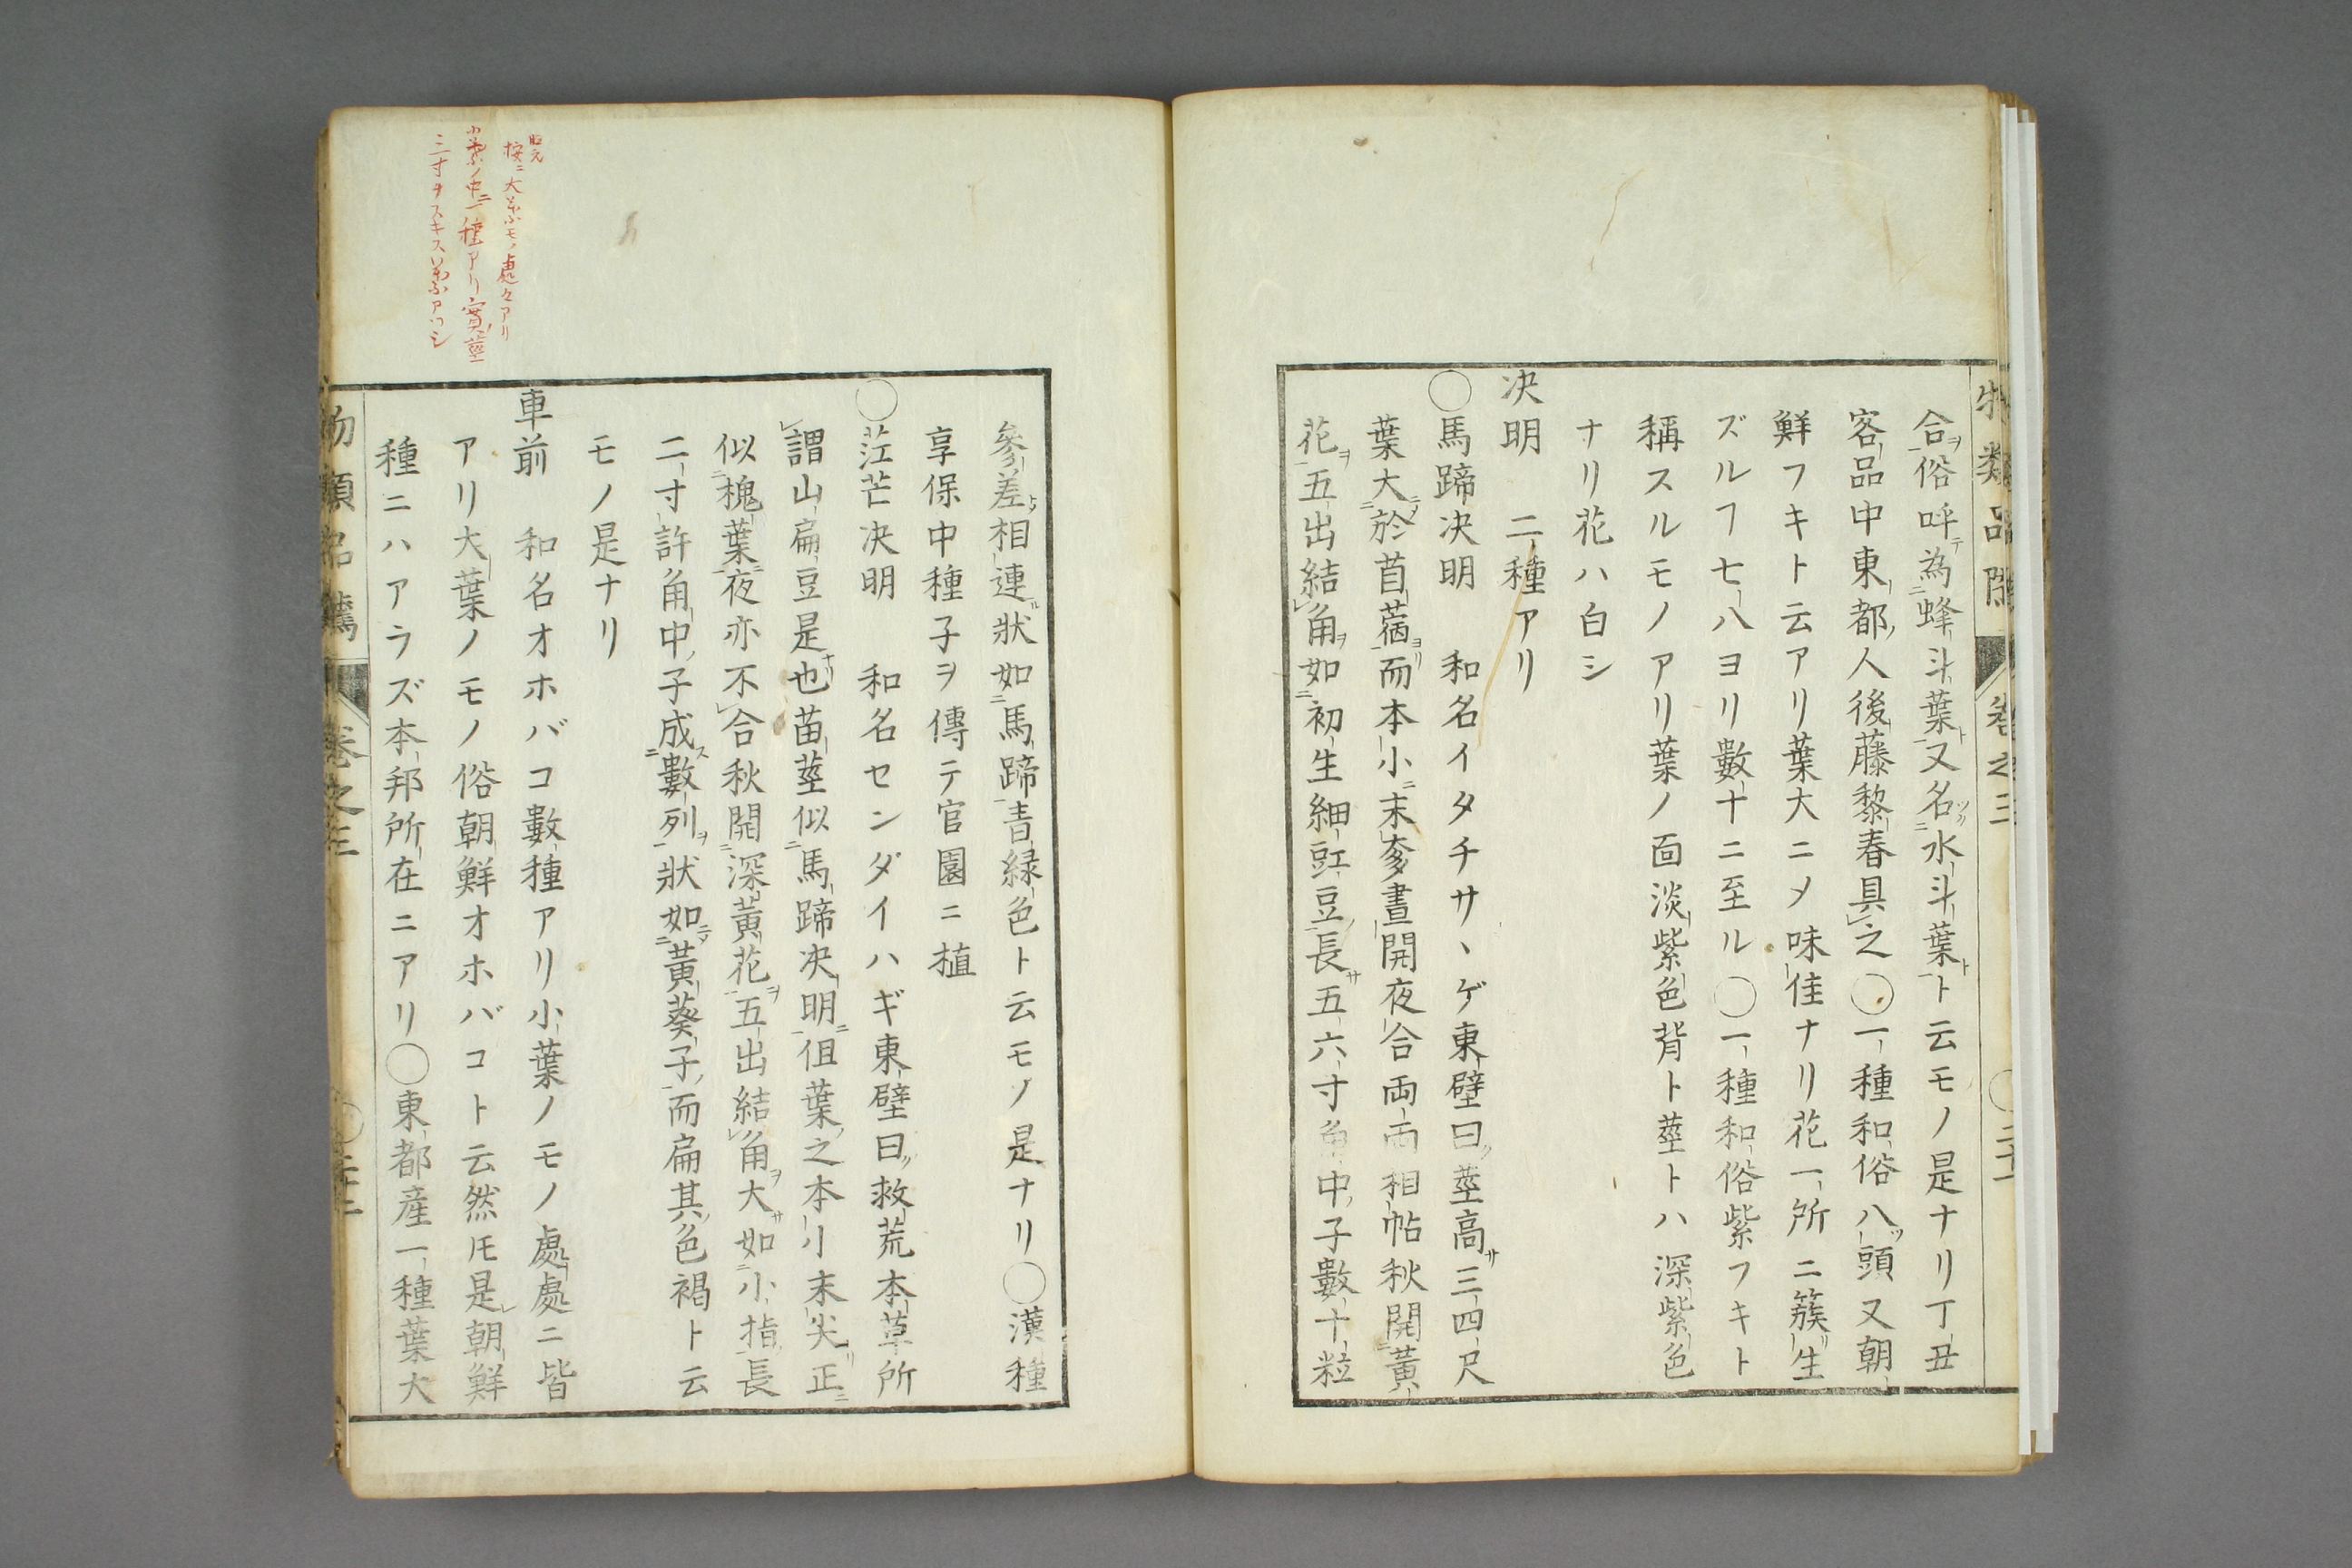 合俗呼為蜂斗葉又名水斗葉ト云モノ是ナリ丁丑
客品中東都人後藤黎春具之〇一種和俗八頭又朝
鮮フキト云アリ葉大ニメ味佳ナリ花一所ニ簇生
ズルフ七八ヨリ數十ニ至ル〇一種和俗紫フキト
稱スルモノアリ葉ノ面淡紫色背ト莖トハ深紫色
ナリ花ハ白シ
決明 二種アリ
〇馬蹄決明 和名イタチサヽゲ東壁曰莖高三四尺
葉大於苜蓿而本小末奓晝開夜合両両相帖秋開黃
花五出結角如初生細豇豆長五六寸角中子數十粒
參差相連狀如馬蹄青緑色ト云モノ是ナリ〇漢種
享保中種子ヲ傳テ官園ニ植
〇茳芒決明 和名センダイハギ東壁曰救荒本草所
謂山扁豆是也苗莖似馬蹄決明但葉之本小末尖正
似槐葉夜亦不合秋開深黃花五出結角大如小指長
二寸許角中子成數列狀如黃葵子而扁其色褐ト云
モノ是ナリ
車前 和名オホバコ數種アリ小葉ノモノ處處ニ皆
アリ大葉ノモノ俗朝鮮オホバコト云然𪜈是朝鮮
種ニハアラズ本邦所在ニアリ〇東都産一種葉大
按ニ大葉モノ處々アリ
小葉ノ中ニ一種アリ實莖
三寸ヲスキス葉アツシ
物類品隲 卷之三